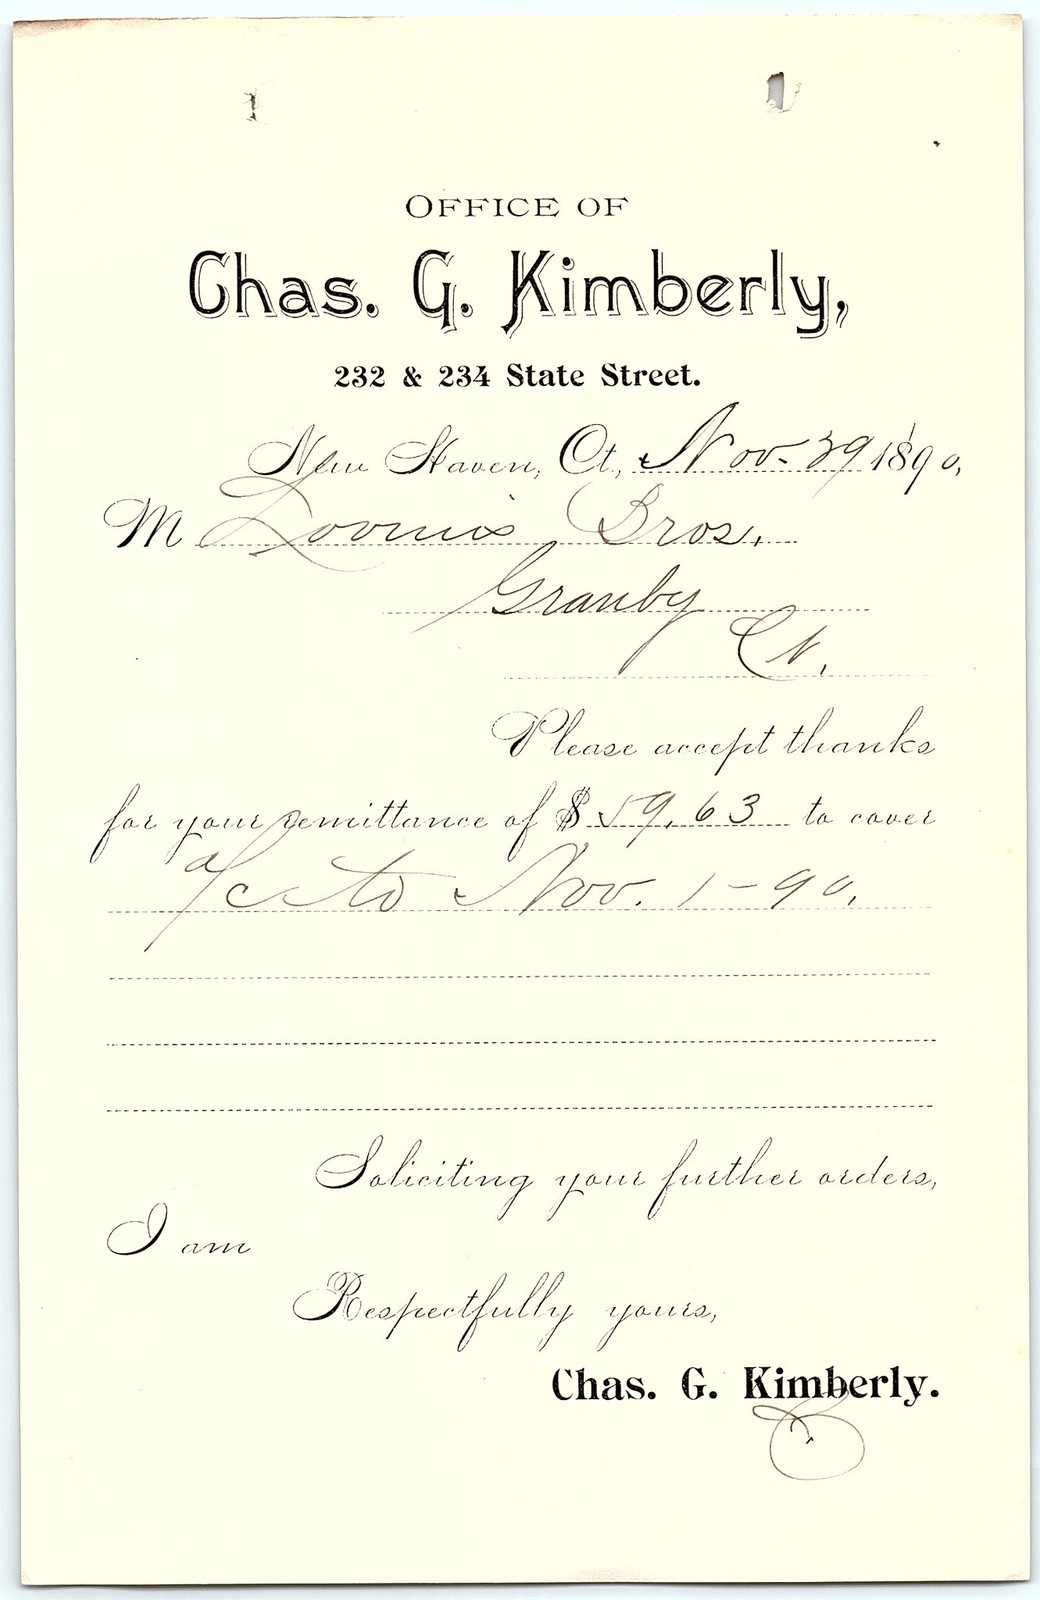 OFFICE OF
Chas. G. Kimberly,
232 & 234 State Street.
New Haven, Ct., Nov. 29 1890,
M Loomis Bros.
Granby
Ct.
Please accept thanks
for your remittance of $ 59.63 to cover
a/c to Nov. 1-90.
Soliciting your further orders,
I am
Respectfully yours,
Chas. G. Kimberly.